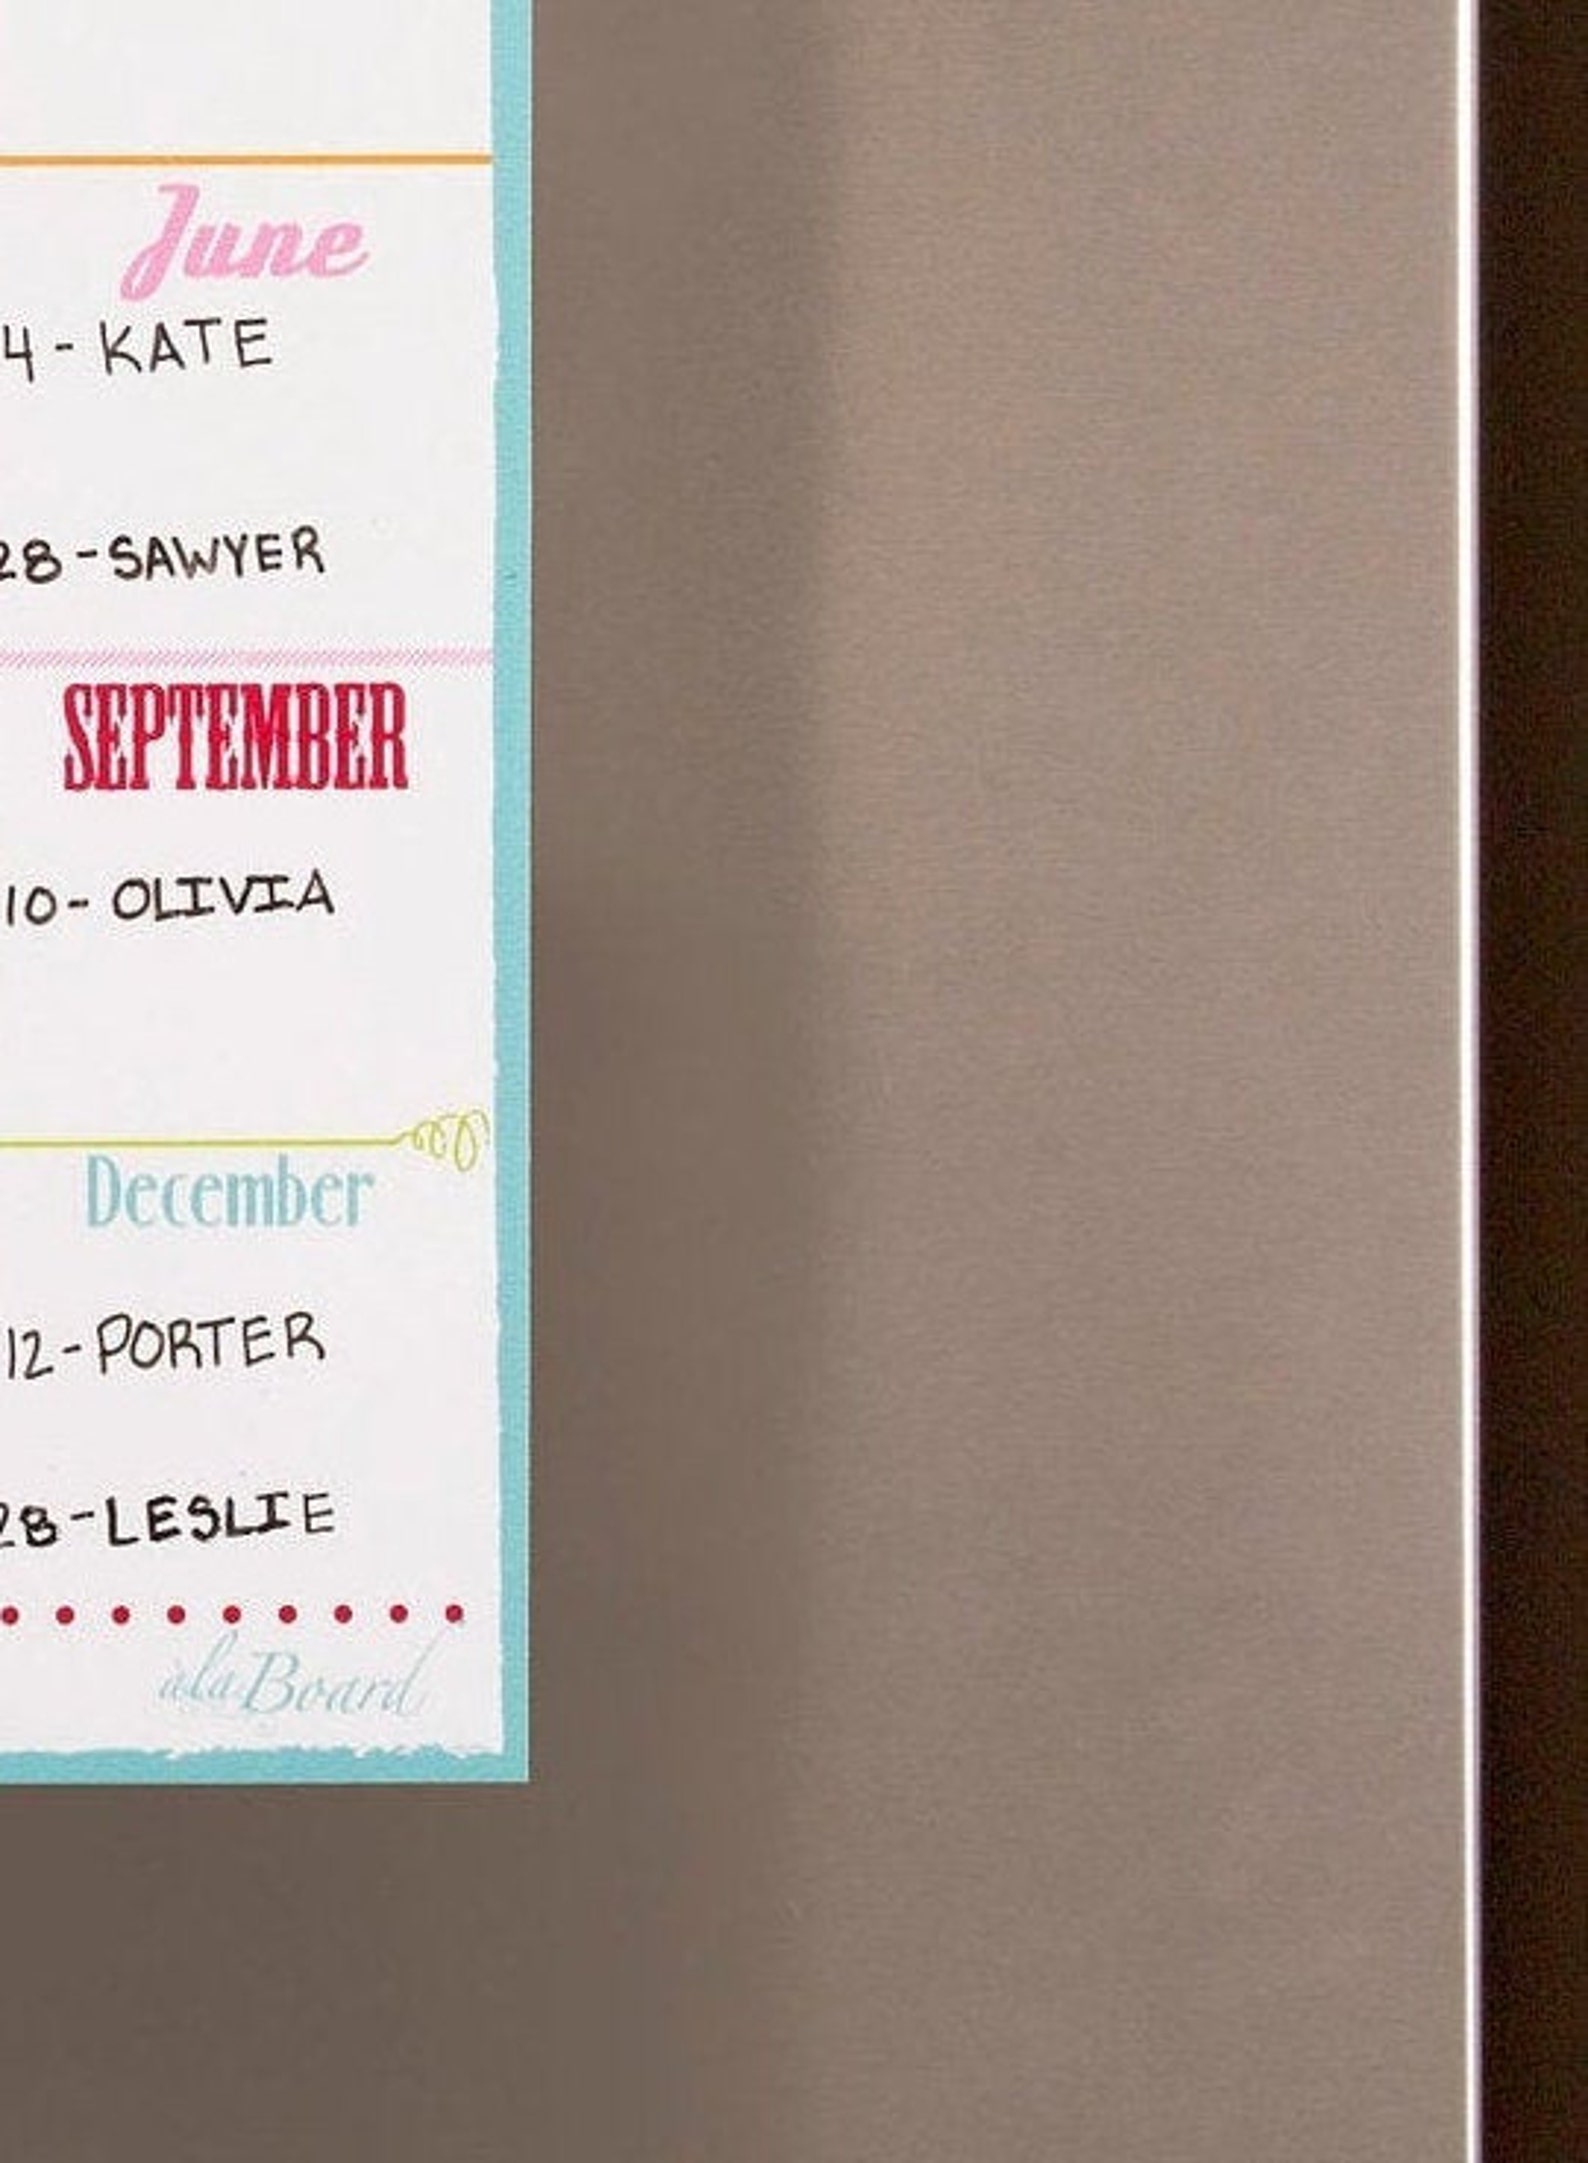 June
4 - KATE
28 - SAWYER
SEPTEMBER
10 - OLIVIA
December
12 - PORTER
28 - LESLIE
alaBoard